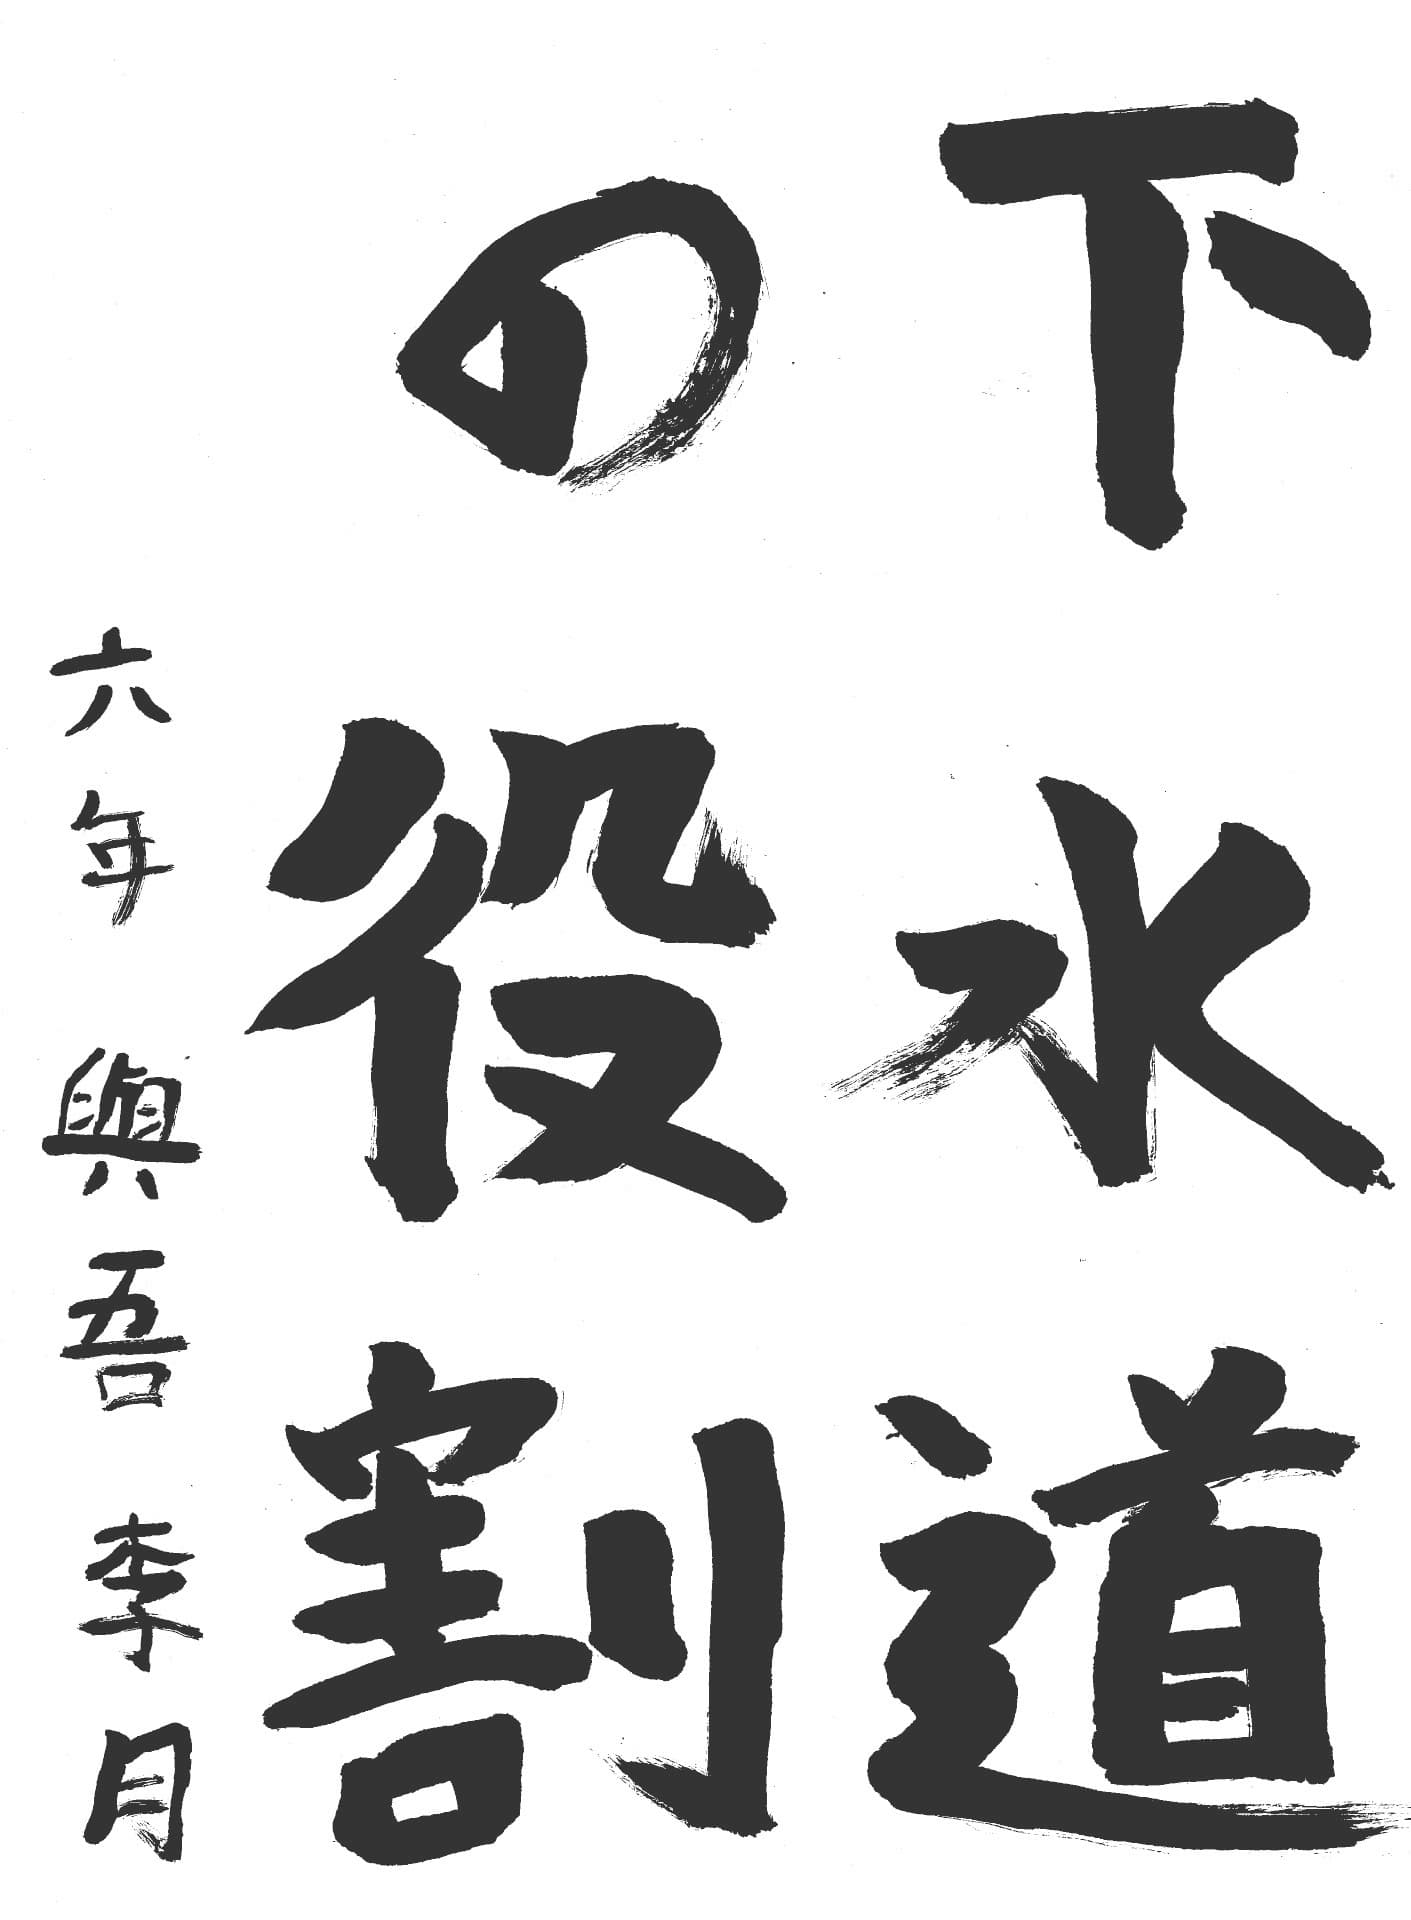 下水道
の役割
六年 與吾李月